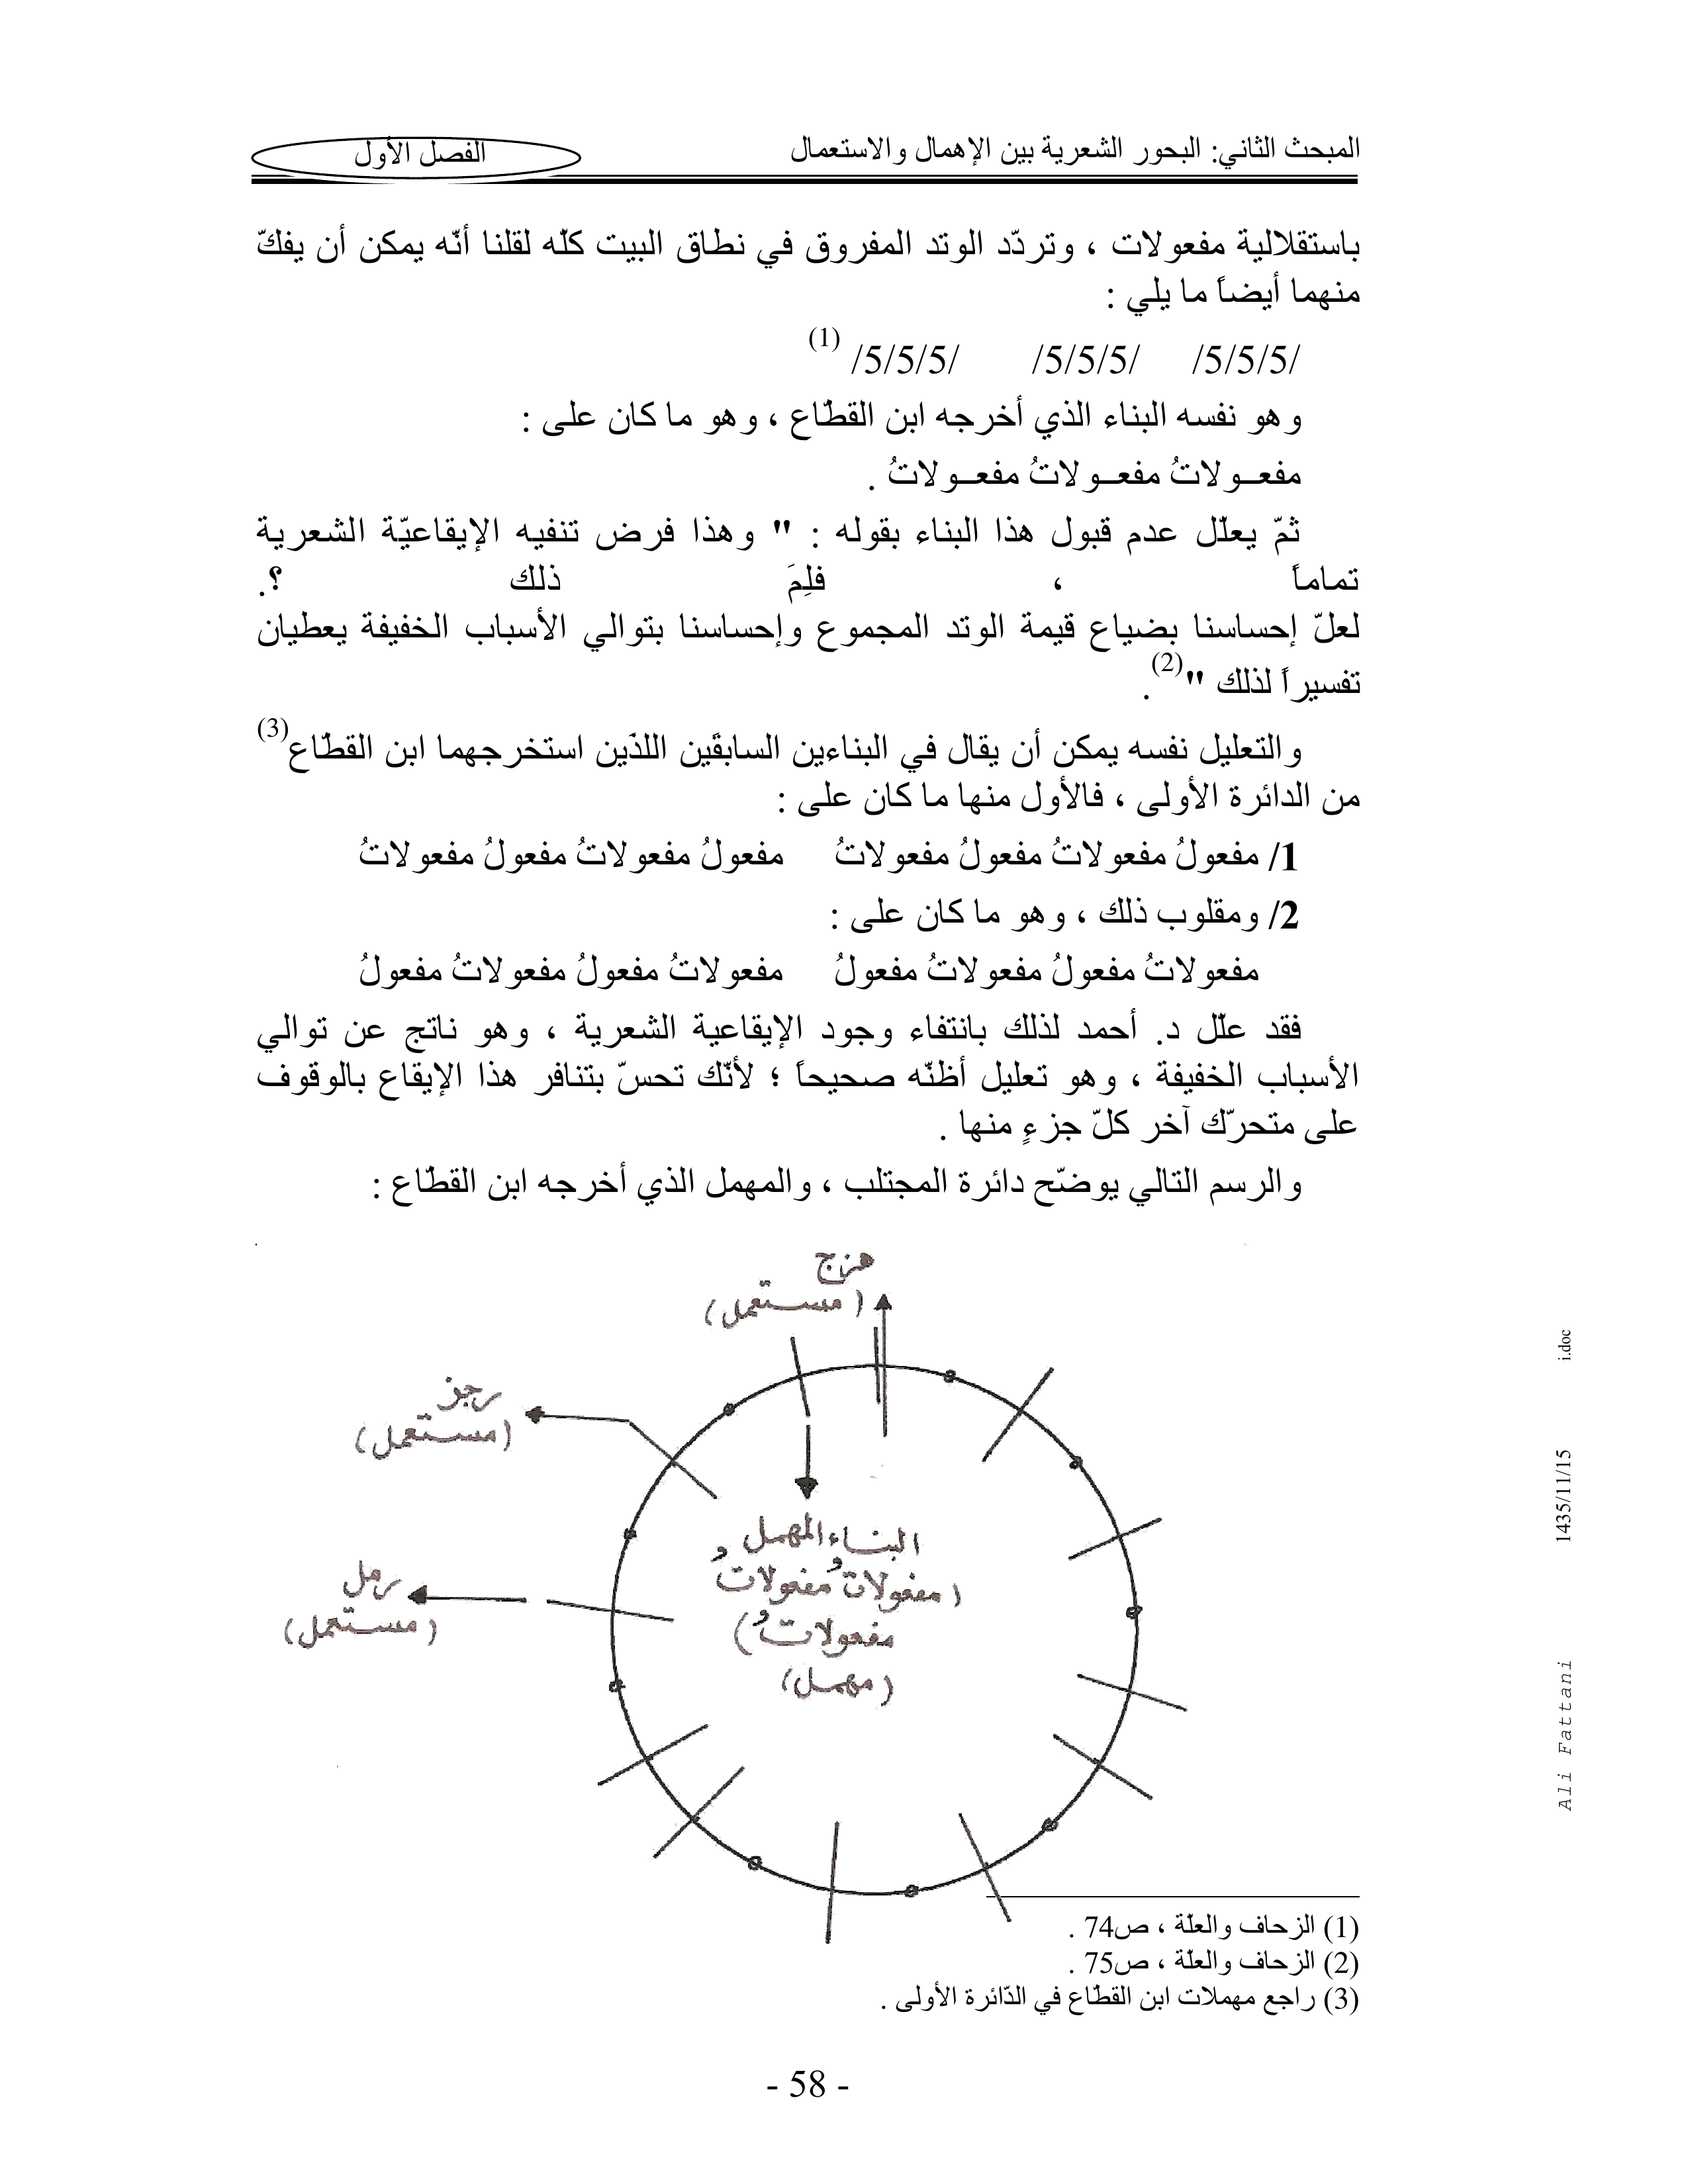 المبحث الثاني: البحور الشعرية بين الإهمال والاستعمال
الفصل الأول
باستقلالية مفعولات ، وتردّد الوتد المفروق في نطاق البيت كلّه لقلنا أنّه يمكن أن يفكّ
منهما أيضاً ما يلي :
/5/5/5/ /5/5/5/ /5/5/5/ (1)
وهو نفسه البناء الذي أخرجه ابن القطّاع ، وهو ما كان على :
مفعــولاتُ مفعــولاتُ مفعــولاتُ .
ثمّ يعلّل عدم قبول هذا البناء بقوله : " وهذا فرض تنفيه الإيقاعيّة الشعرية
تماماً ، فلِمَ ذلك ؟.
لعلّ إحساسنا بضياع قيمة الوتد المجموع وإحساسنا بتوالي الأسباب الخفيفة يعطيان
تفسيراً لذلك "(2) .
والتعليل نفسه يمكن أن يقال في البناءين السابقَين اللذَين استخرجهما ابن القطّاع(3)
من الدائرة الأولى ، فالأول منها ما كان على :
1/ مفعولُ مفعولاتُ مفعولُ مفعولاتُ مفعولُ مفعولاتُ مفعولُ مفعولاتُ
2/ ومقلوب ذلك ، وهو ما كان على :
مفعولاتُ مفعولُ مفعولاتُ مفعولُ مفعولاتُ مفعولُ مفعولاتُ مفعولُ
فقد علّل د. أحمد لذلك بانتفاء وجود الإيقاعية الشعرية ، وهو ناتج عن توالي
الأسباب الخفيفة ، وهو تعليل أظنّه صحيحاً ؛ لأنّك تحسّ بتنافر هذا الإيقاع بالوقوف
على متحرّك آخر كلّ جزءٍ منها .
والرسم التالي يوضّح دائرة المجتلب ، والمهمل الذي أخرجه ابن القطّاع :
هزج
(مستعمل)
رجز
(مستعمل)
رمل
(مستعمل)
البناء المهمل
(مفعولاتُ مفعولاتُ
مفعولاتُ)
(مهمل)
(1) الزحاف والعلّة ، ص74 .
(2) الزحاف والعلّة ، ص75 .
(3) راجع مهملات ابن القطّاع في الدّائرة الأولى .
- 58 -
Ali Fattani 1435/11/15 i.doc